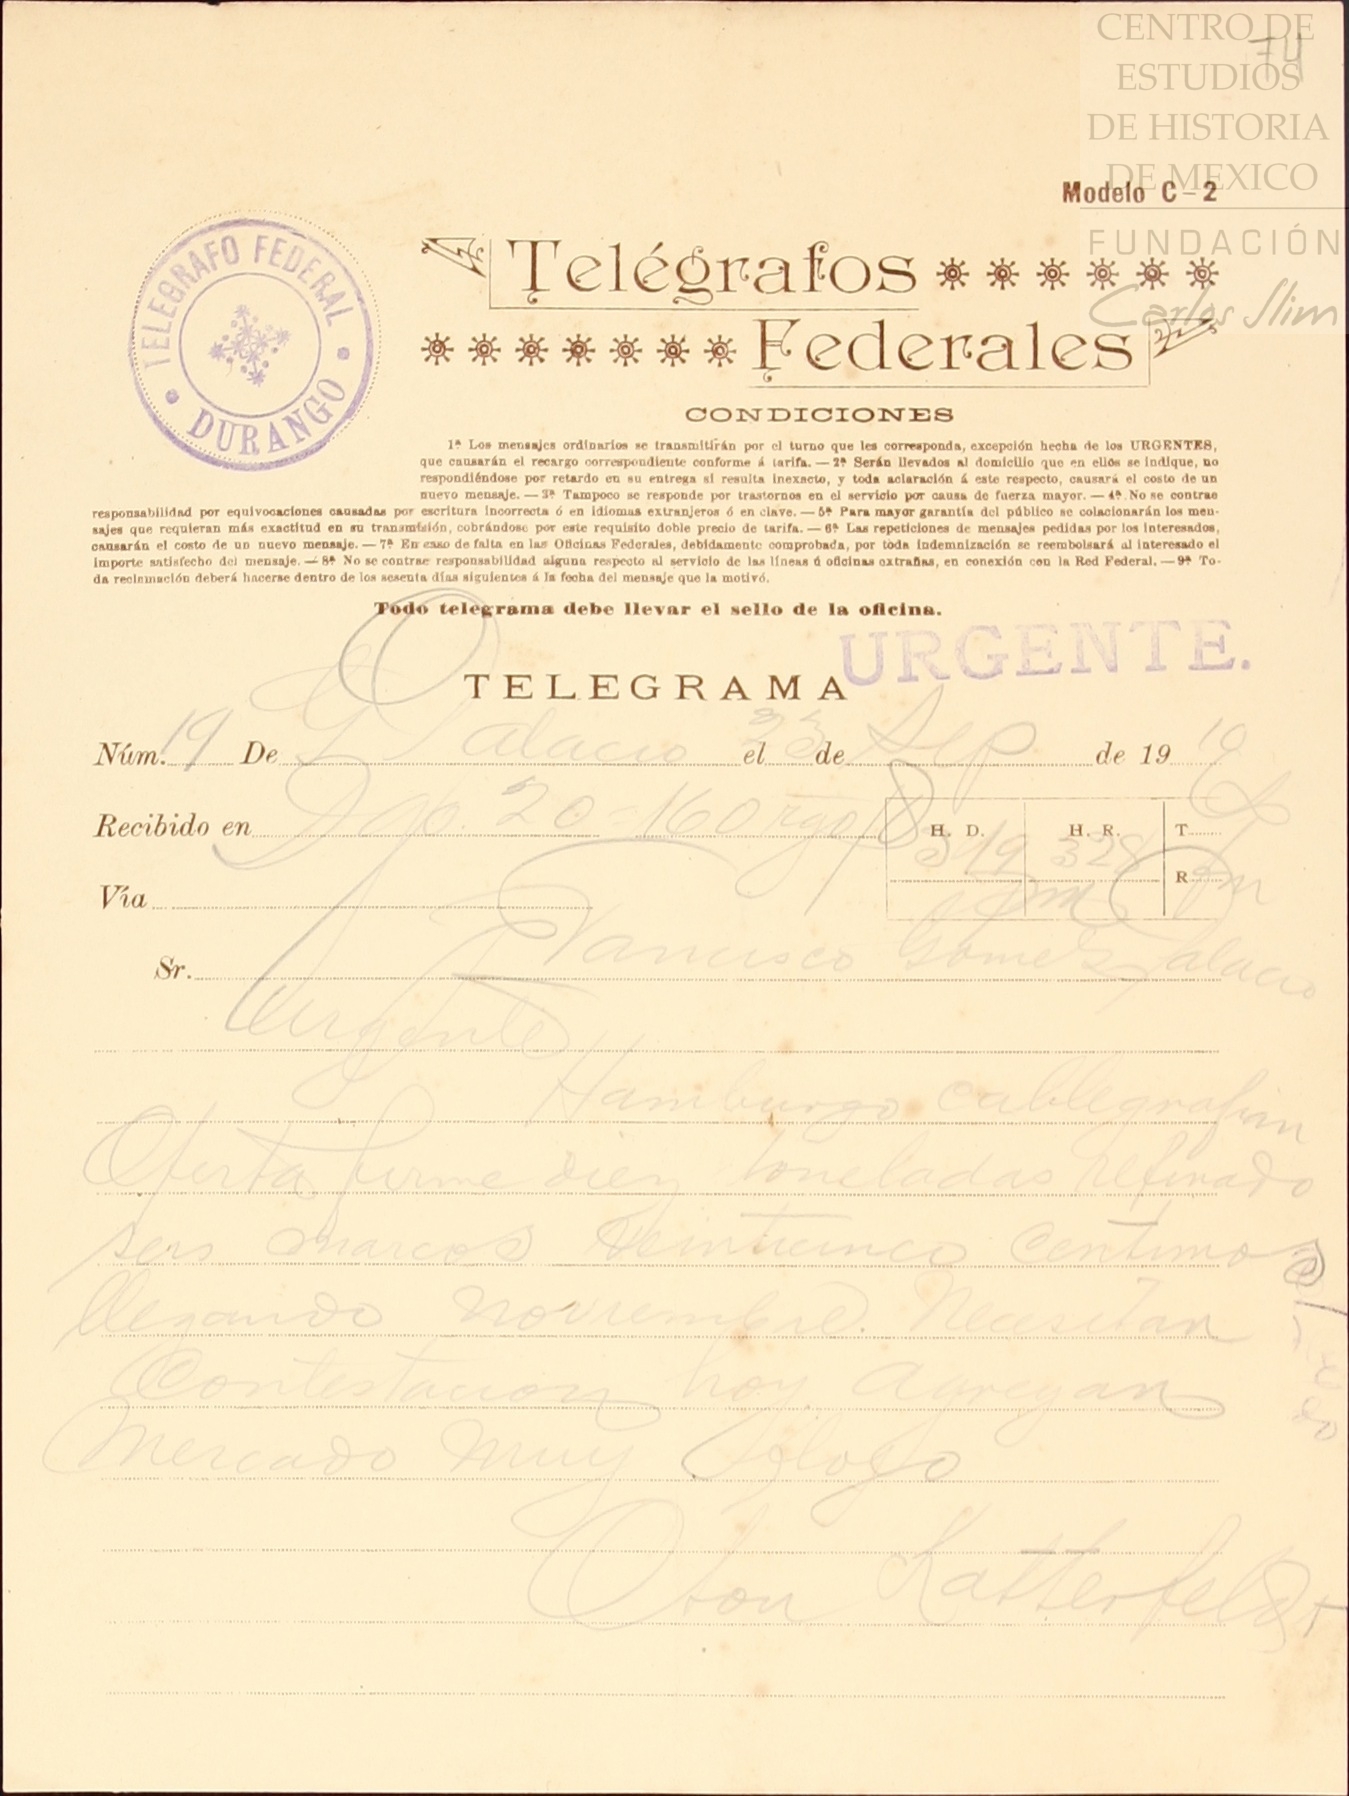 CENTRO DE
ESTUDIOS
DE HISTORIA
DE MEXICO
FUNDACIÓN
Carlos Slim
74
Modelo C-2
TELEGRAFO FEDERAL
DURANGO
Telégrafos
Federales
CONDICIONES
1ª Los mensajes ordinarios se transmitirán por el turno que les corresponda, excepción hecha de los URGENTES,
que causarán el recargo correspondiente conforme á tarifa. — 2ª Serán llevados al domicilio que en ellos se indique, no
respondiéndose por retardo en su entrega si resulta inexacto, y toda aclaración á este respecto, causará el costo de un
nuevo mensaje. — 3ª Tampoco se responde por trastornos en el servicio por causa de fuerza mayor. — 4ª No se contrae
responsabilidad por equivocaciones causadas por escritura incorrecta ó en idiomas extranjeros ó en clave. — 5ª Para mayor garantía del público se colacionarán los men-
sajes que requieran más exactitud en su transmisión, cobrándose por este requisito doble precio de tarifa. — 6ª Las repeticiones de mensajes pedidas por los interesados,
causarán el costo de un nuevo mensaje. — 7ª En caso de falta en las Oficinas Federales, debidamente comprobada, por toda indemnización se reembolsará al interesado el
importe satisfecho del mensaje. — 8ª No se contrae responsabilidad alguna respecto al servicio de las líneas ú oficinas extrañas, en conexión con la Red Federal. — 9ª To-
da reclamación deberá hacerse dentro de los sesenta días siguientes á la fecha del mensaje que la motivó.
Todo telegrama debe llevar el sello de la oficina.
URGENTE.
TELEGRAMA
Núm. 19 De G Palacio el 23 de Sep de 19 10
Recibido en Dgo. 20 160
H. D. H. R. T
319 328 R
Vía
Sr. Francisco Gomez Palacio
Urgente
Hamburgo cablegrafian
Oferta firme diez toneladas refinado
seis marcos veinticinco centimos
llegando noviembre. Necesitan
Contestacion hoy agregan
Mercado muy flojo
Oton Katterfeldt